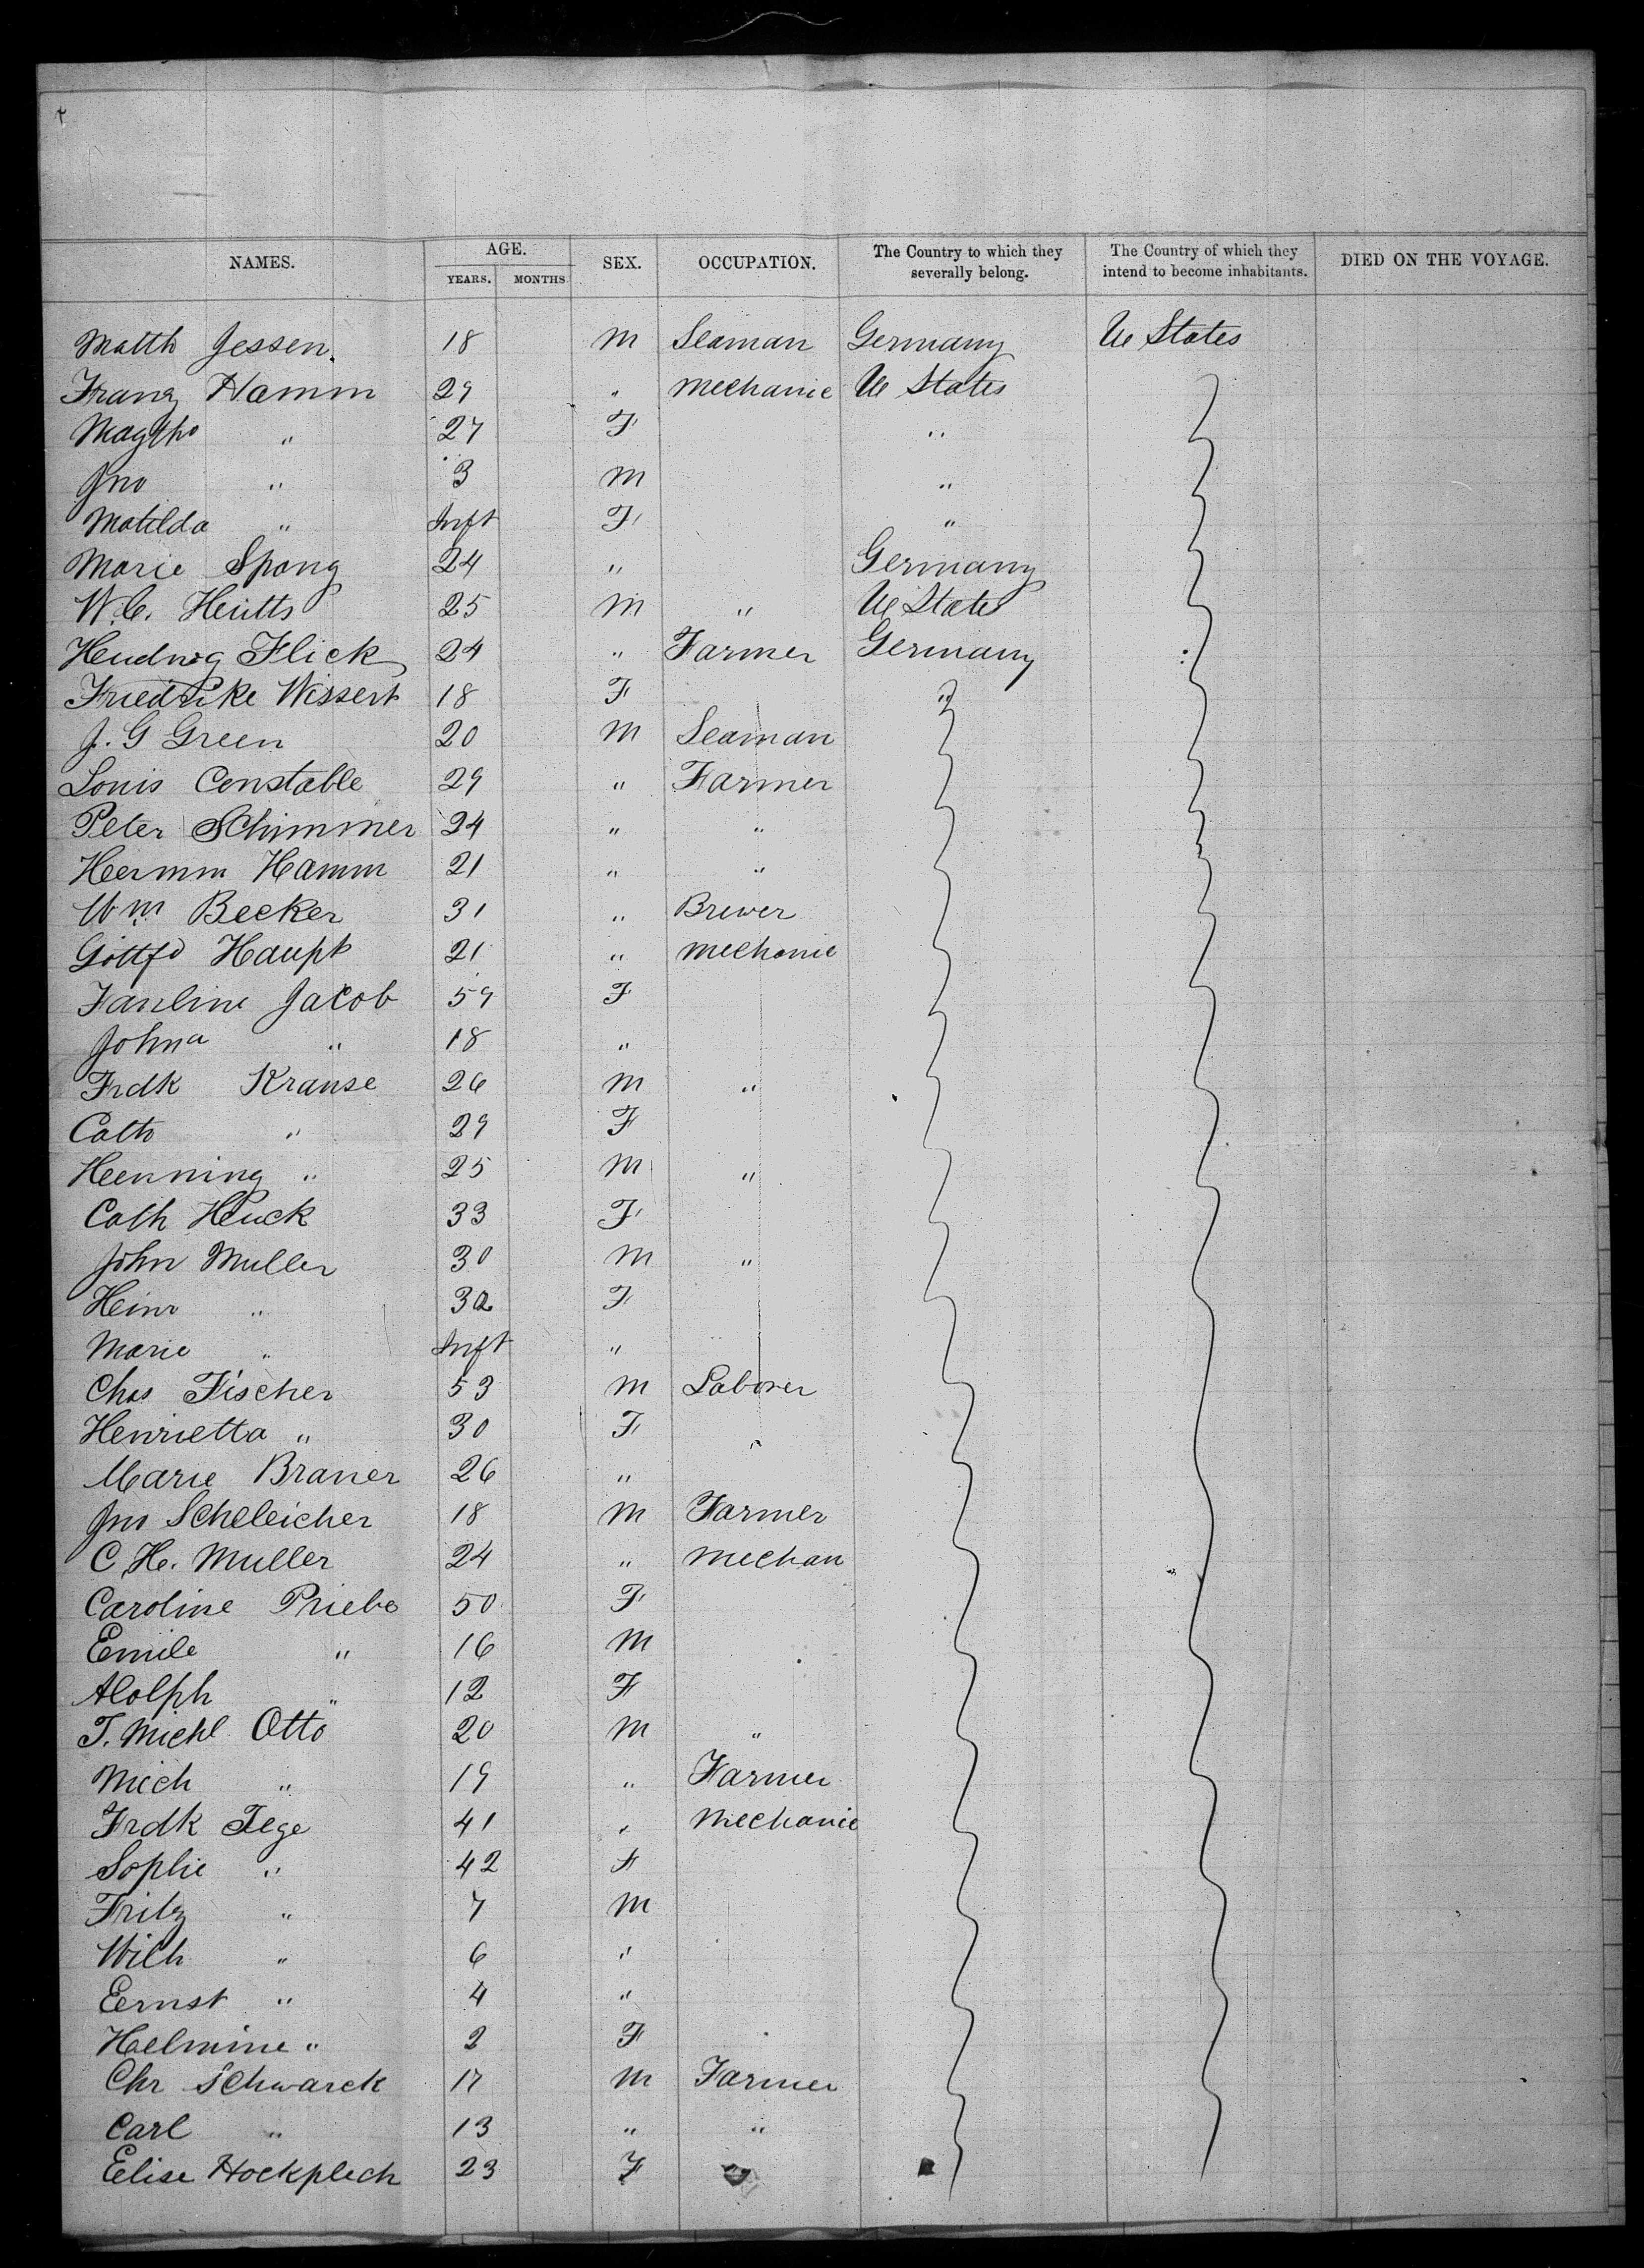 NAMES. AGE. SEX. OCCUPATION. The Country to which they severally belong. The Country of which they intend to become inhabitants. DIED ON THE VOYAGE.
YEARS. MONTHS
Matth Jessen. 18 M Seaman Germany U States
Franz Hamm 29 " Mechanic U States
" 27 F "
Jno " 3 M "
Matilda " Inft F "
Marie Spong 24 " Germany
W.C. Heutts 25 M " U States
Flick 24 " Farmer Germany
Friedrike Wissert 18 F "
J. G Green 20 M Seaman
Louis Constable 29 " Farmer
Peter Schimmer 24 " "
Hermm Hamm 21 " "
Wm Becker 31 " Brewer
Gottfd Haupt 21 " Mechanic
Pauline Jacob 59 F
Johna " 18 "
Frdk Krause 26 M "
Cath " 29 F
Henning " 25 M "
Cath Heuck 33 F
John Muller 30 M "
Heinr " 32 F
Marie " Inft "
Chas Fischer 53 M Laborer
Henrietta " 30 F
Marie Braner 26 "
Jno Scheleicher 18 M Farmer
C. H. Muller 24 " Mechan
Caroline Priebe 50 F
Emile " 16 M
Alolph " 12 F
T. Michl Otto 20 M "
Mich " 19 " Farmer
Frdk Tege 41 " Mechanic
Sophie " 42 F
Fritz " 7 M
Wilh " 6 "
Ernst " 4 "
Helmine " 2 F
Chr Schwarck 17 M Farmer
Carl " 13 " "
Elise Hockplech 23 F